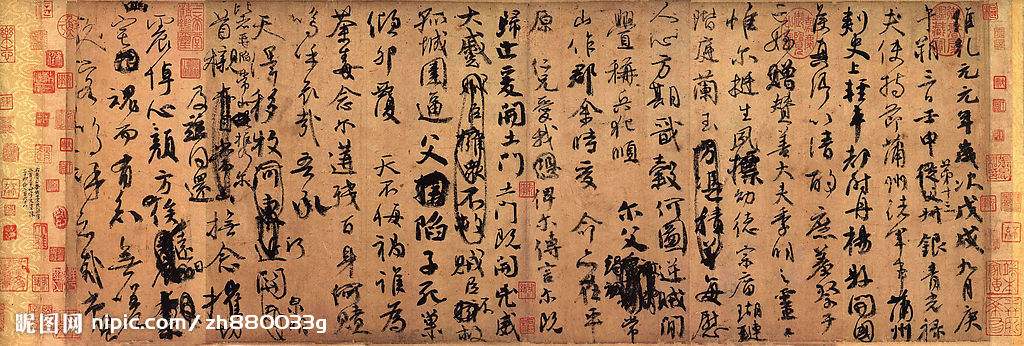 維乾元元年歲次戊戌九月庚
午朔三日壬申第十三叔銀青光祿
夫使持節蒲州諸軍事蒲州
刺史上輕車都尉丹楊縣開國
侯真卿以清酌庶羞祭于
亡姪贈贊善大夫季明之靈曰
惟爾挺生夙標幼德宗廟瑚璉
階庭蘭玉方憑積善每慰
人心方期戩穀何圖逆賊間
釁稱兵犯順爾父竭誠常
山作郡余時受命亦在平
原仁兄愛我俾爾傳言爾既
歸止爰開土門土門既開凶威
大蹙賊臣不救
孤城圍逼父陷子死巢
傾卵覆天不悔禍誰為
荼毒念爾遘殘百身何贖
嗚乎哀哉吾承
天澤移牧河關泉明
比者再陷常山攜爾
首櫬及茲同還撫念摧切
震悼心顏方俟遠日
宅魂而有知無嗟
久客嗚呼哀哉尚
昵图网 nipic.com/ zh880033g